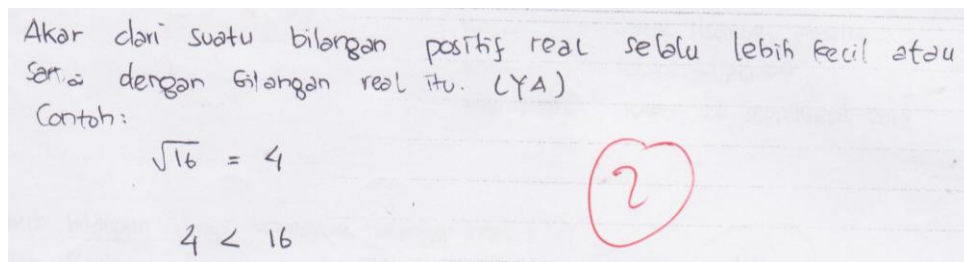 Akar dari suatu bilangan positif real selalu lebih kecil atau
sama dengan bilangan real itu. (YA)
Contoh:
√16 = 4
2
4 < 16